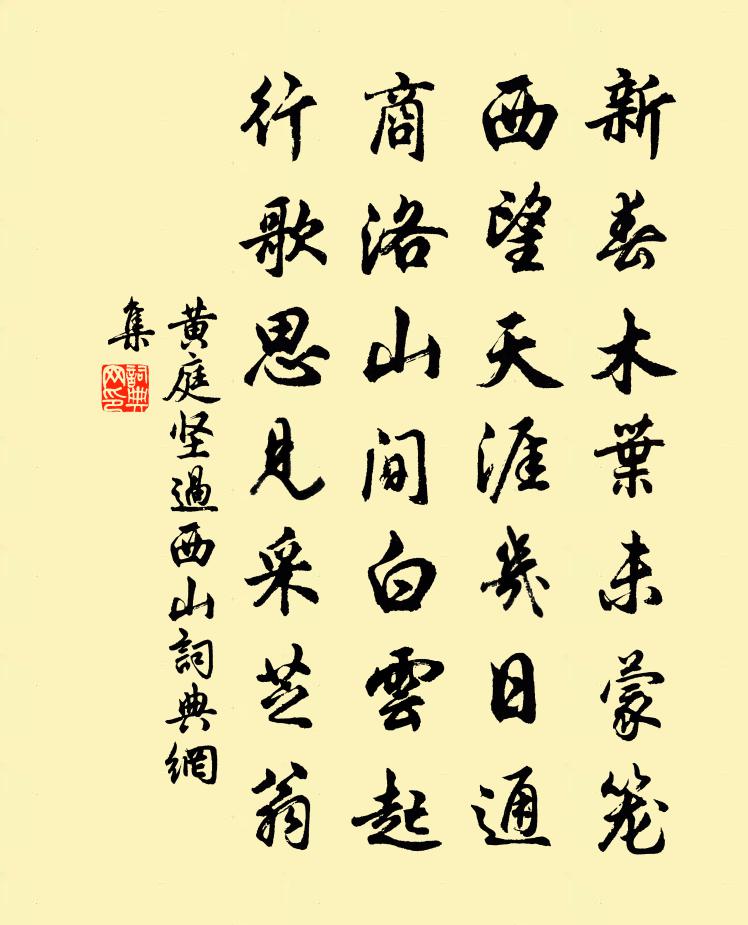 新春木葉未蒙笼
西望天涯幾日通
商洛山间白雲起
行歌思見采芝翁
黄庭坚過西山詞典網
集
詞典
网印